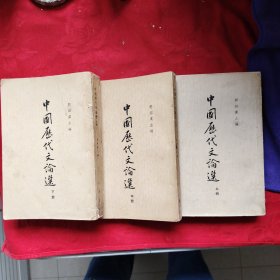 郭紹虞主編
中國歷代文論選
下冊
郭紹虞主編
中國歷代文論選
中冊
郭紹虞主編
中國歷代文論選
上冊